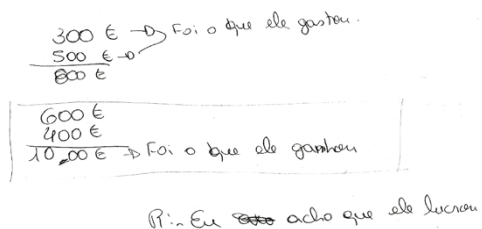 300 € → Foi o que ele gastou.
500 € →
800 €
600 €
400 €
10,00 € → Foi o que ele ganhou
R:. Eu acho que ele lucrou